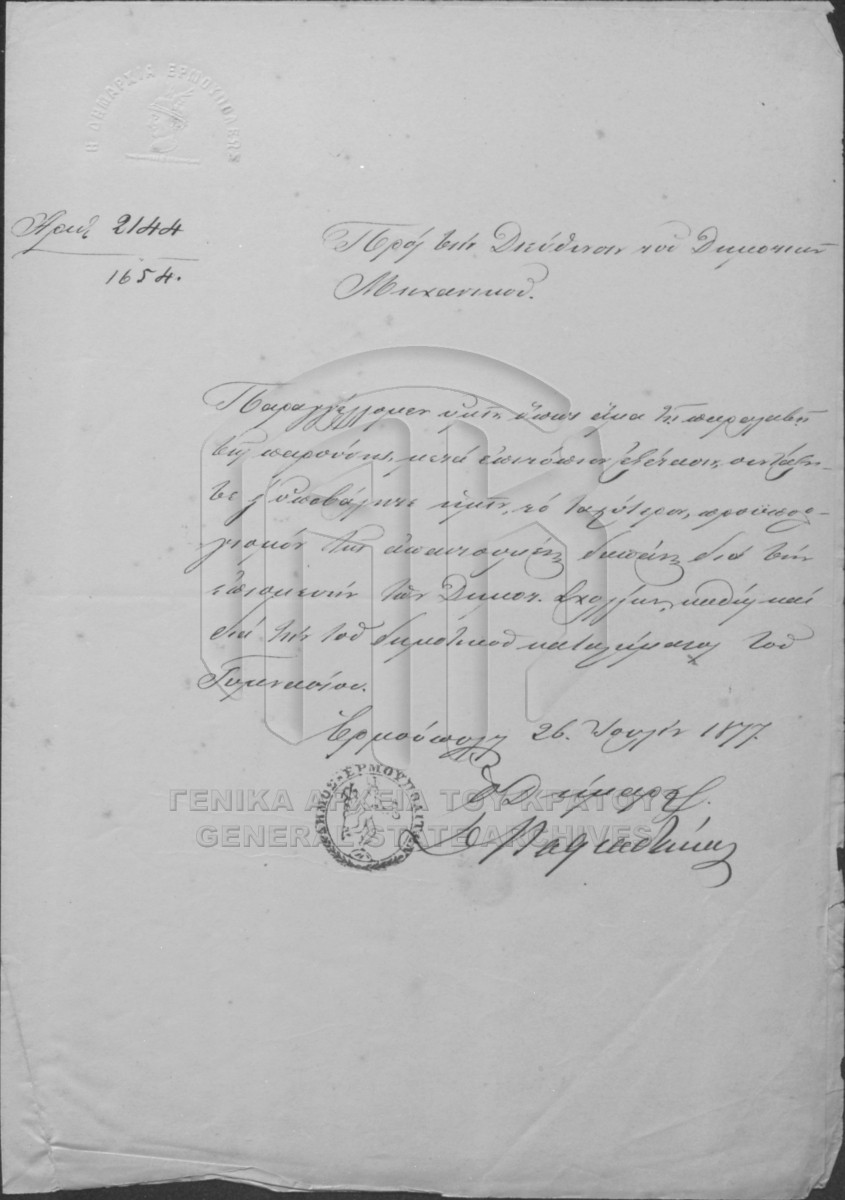 Η ΔΗΜΑΡΧΙΑ ΕΡΜΟΥΠΟΛΕΩΣ
Αριθ 2144
1654.
Πρός τήν Διεύθυνσιν τοῦ Δημοτικοῦ
Μηχανικοῦ.
Παραγγέλλομεν ὑμῖν ὅπως ἅμα τῇ παραλαβῇ
τῆς παρούσης, μετά ἐπιτόπιον ἐξέτασιν, συντάξη-
τε ὑποβάλητε ἡμῖν, τό ταχύτερον, προϋπολο-
γισμόν τῆς ἀπαιτουμένης δαπάνης διά τήν
ἐπισκευήν τῶν Δημοτ. Σχολείων, καθώς καί
διά τήν τοῦ δημοτικοῦ καταστήματος τοῦ
Γυμνασίου.
Ἑρμούπολις 26. Ἰουλίου 1877.
Ὁ Δήμαρχος.
ΔΗΜΟΣ ΕΡΜΟΥΠΟΛΙΤΩΝ
ΓΕΝΙΚΑ ΑΡΧΕΙΑ ΤΟΥ ΚΡΑΤΟΥΣ
GENERAL STATE ARCHIVES